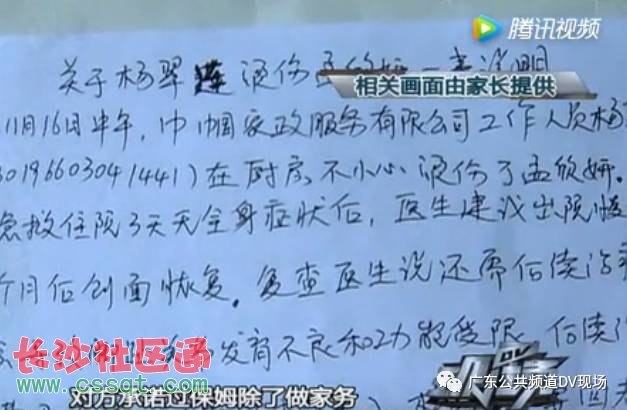 腾讯视频
关于杨翠莲烫伤孟欣妍一事说明
相关画面由家长提供
11月16日中午，巾帼家政服务有限公司工作人员杨
30196603041441)在厨房不小心烫伤了孟欣妍.
急救住院3天无全身症状后，医生建议出院
个月后创面恢复。复查医生说还需后续治
发育不良和功能受限 后续
长沙社区通
www.cssqt.com
对方承诺过保姆除了做家务
DV现场
广东公共频道DV现场